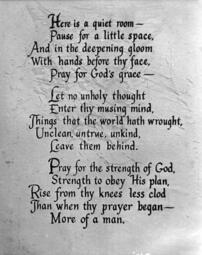 Here is a quiet room —
Pause for a little space,
And in the deepening gloom
With hands before thy face,
Pray for God's grace —
Let no unholy thought
Enter thy musing mind,
Things that the world hath wrought,
Unclean, untrue, unkind,
Leave them behind.
Pray for the strength of God,
Strength to obey His plan,
Rise from thy knees less clod
Than when thy prayer began —
More of a man.